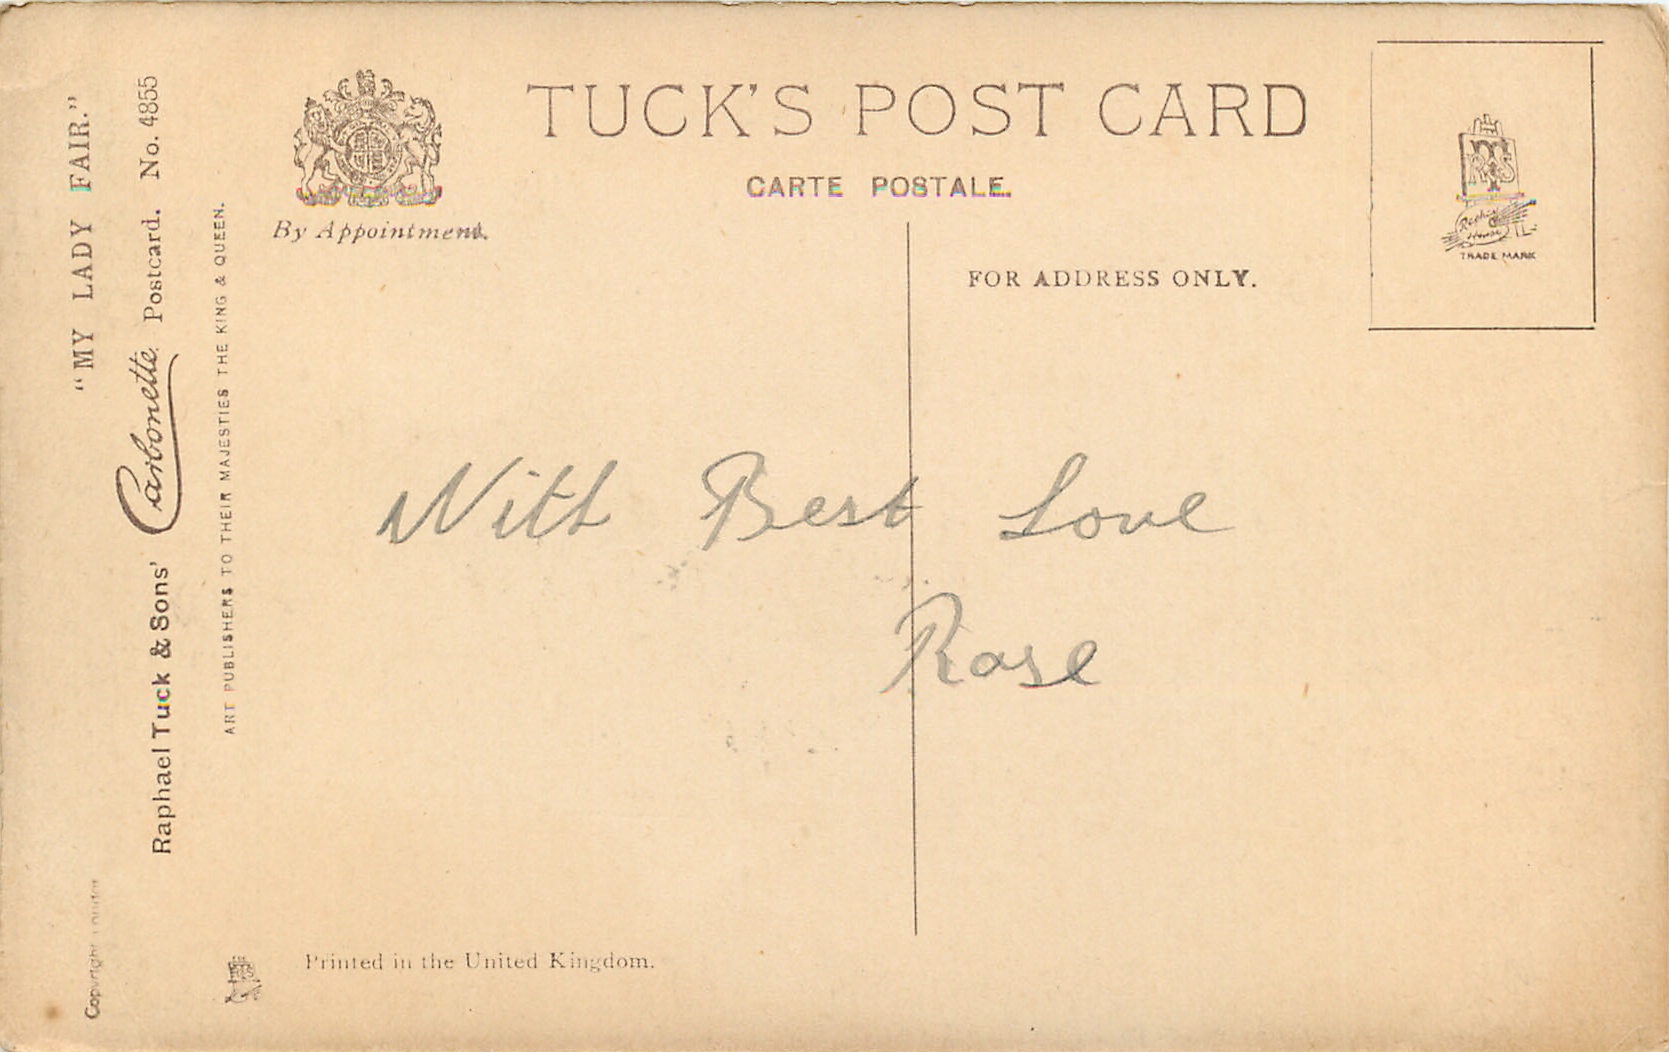 "MY LADY FAIR."
Raphael Tuck & Sons' Carbonette Postcard. No. 4855
ART PUBLISHERS TO THEIR MAJESTIES THE KING & QUEEN.
Copyright London
By Appointment.
TUCK'S POST CARD
CARTE POSTALE.
FOR ADDRESS ONLY.
RTS
Raphael
House
TRADE MARK
With Best Love
Rose
Printed in the United Kingdom.